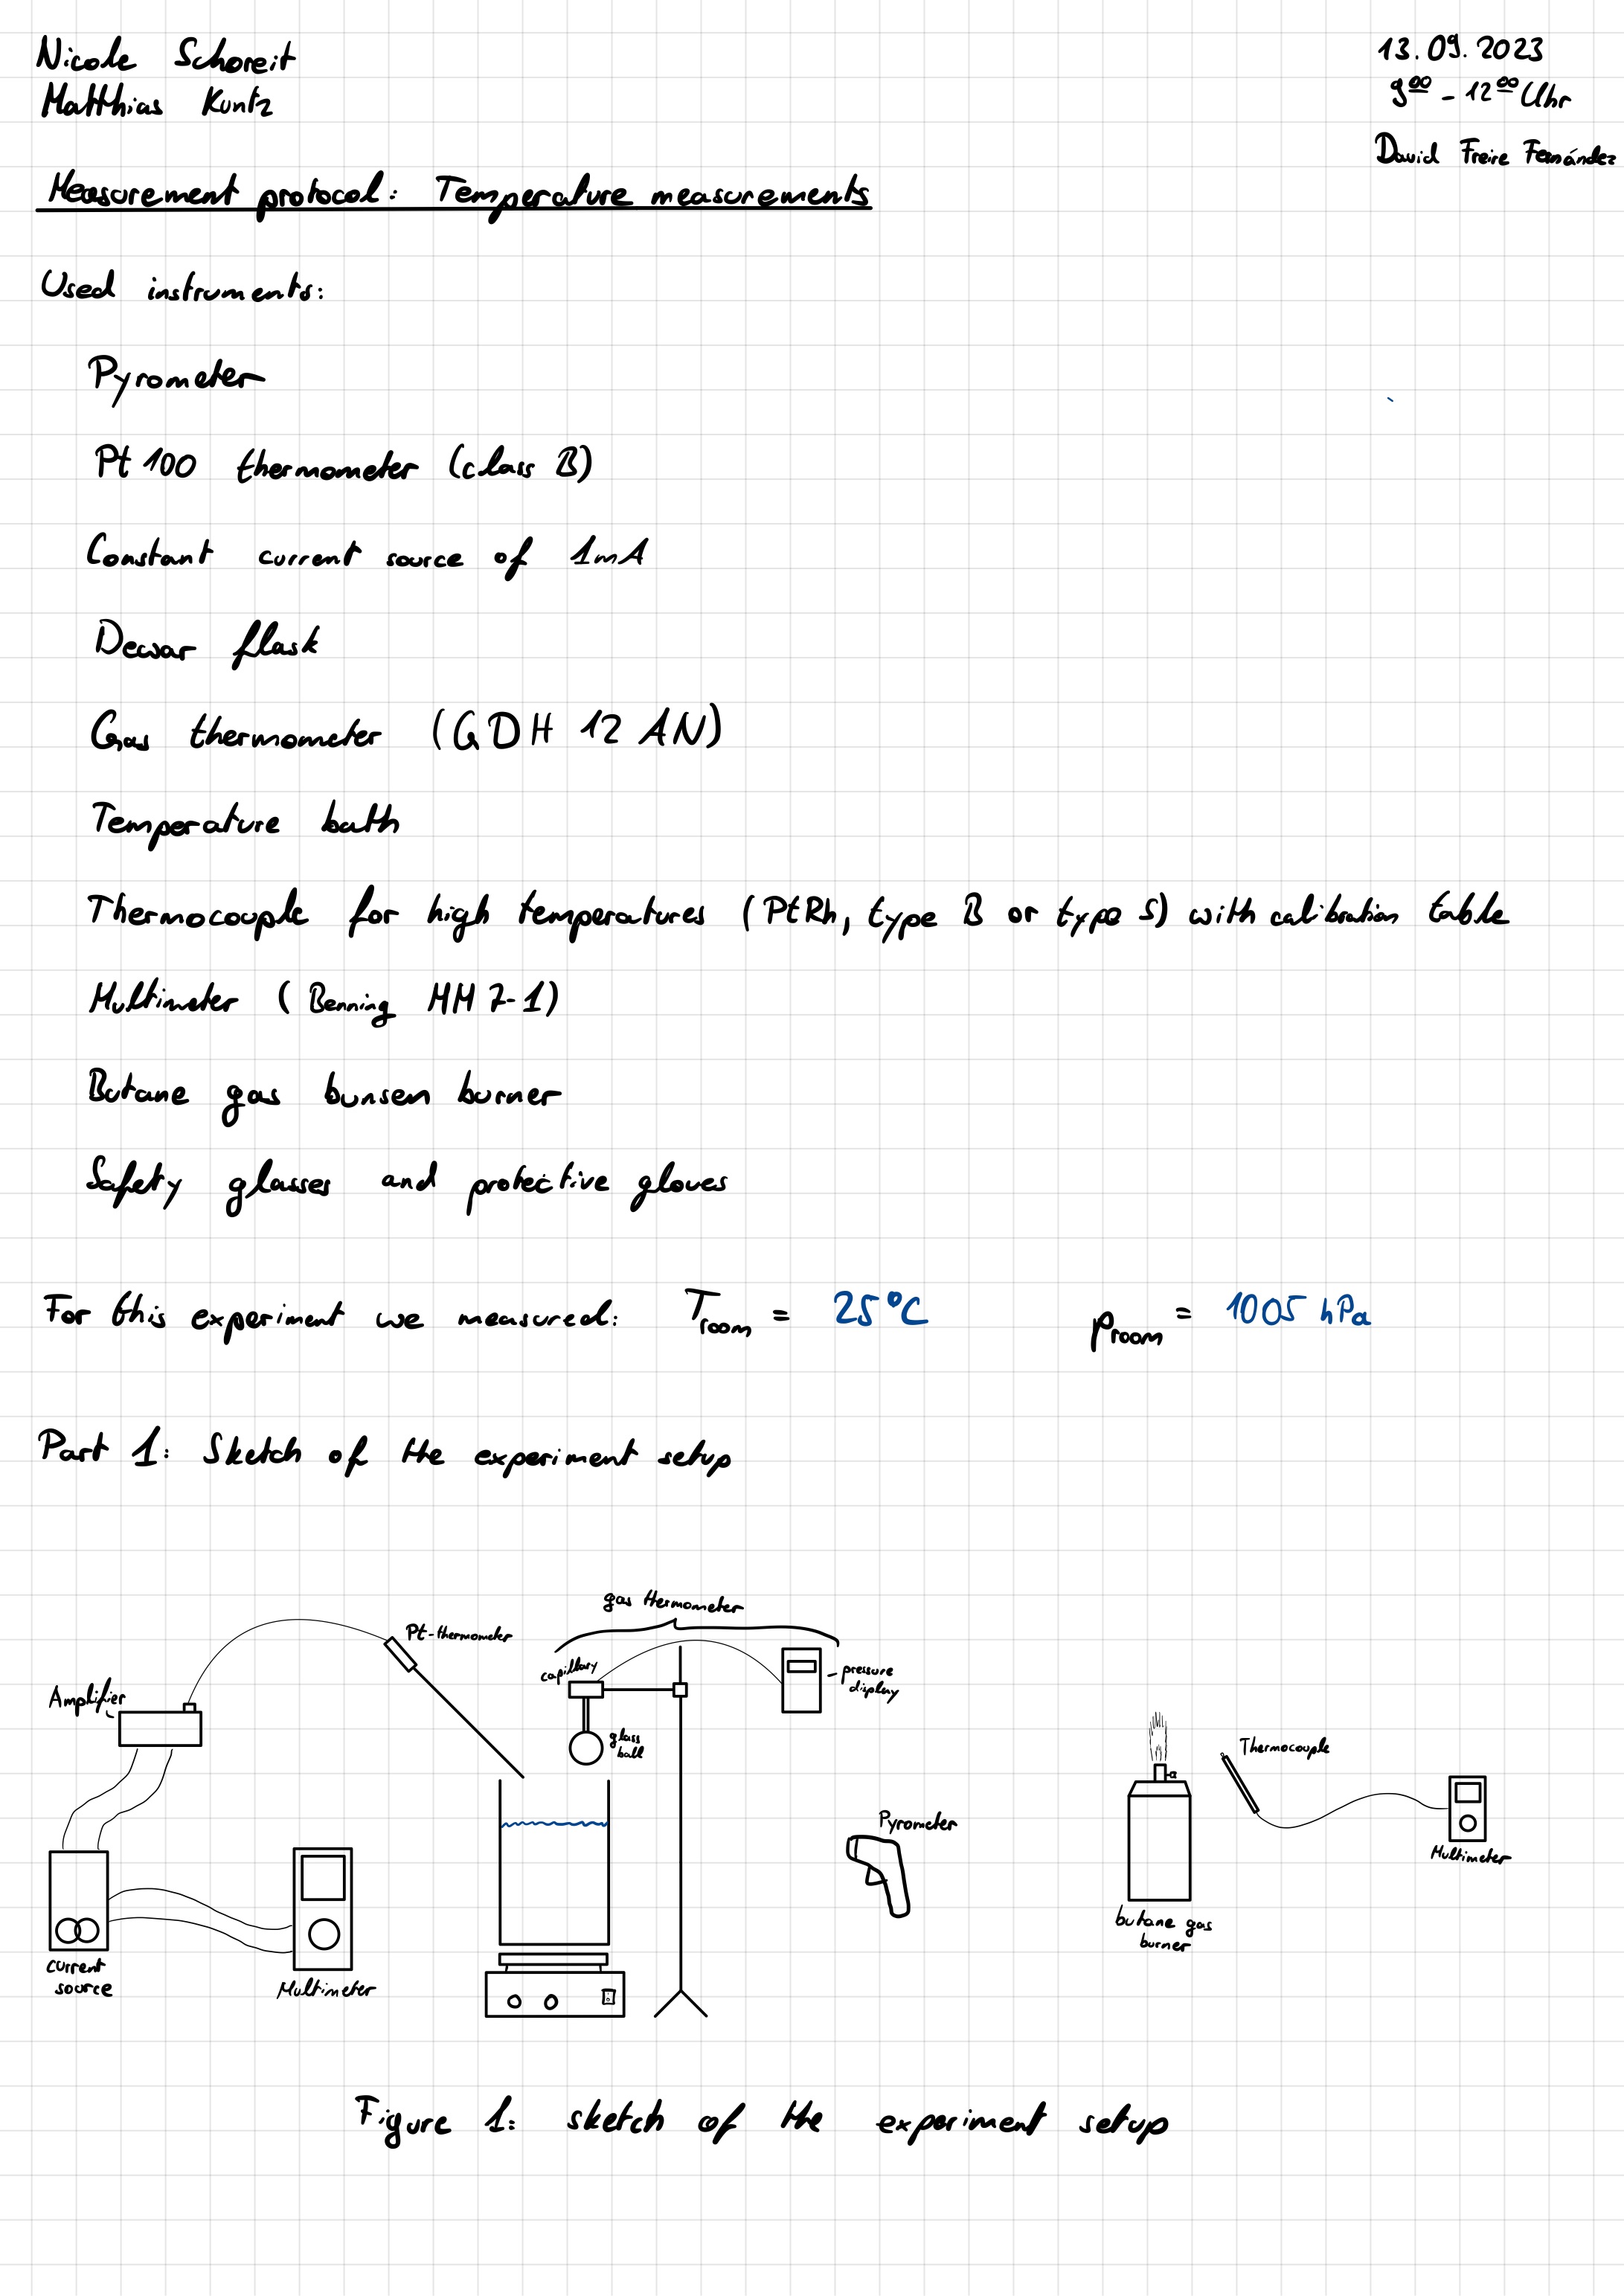 Nicole Schoreit
Matthias Kuntz
13.09.2023
9⁰⁰ - 12⁰⁰ Uhr
David Freire Fernández
Measurement protocol: Temperature measurements
Used instruments:
Pyrometer
Pt 100 thermometer (class B)
Constant current source of 1mA
Dewar flask
Gas thermometer (GDH 12 AN)
Temperature bath
Thermocouple for high temperatures (PtRh, type B or type S) with calibration table
Multimeter (Benning MM 7-1)
Butane gas bunsen burner
Safety glasses and protective gloves
For this experiment we measured: T_room = 25°C p_room = 1005 hPa
Part 1: Sketch of the experiment setup
gas thermometer
Pt-thermometer
capillary
pressure
display
Amplifier
glass
ball
Thermocouple
Pyrometer
Multimeter
butane gas
burner
current
source
Multimeter
Figure 1: sketch of the experiment setup